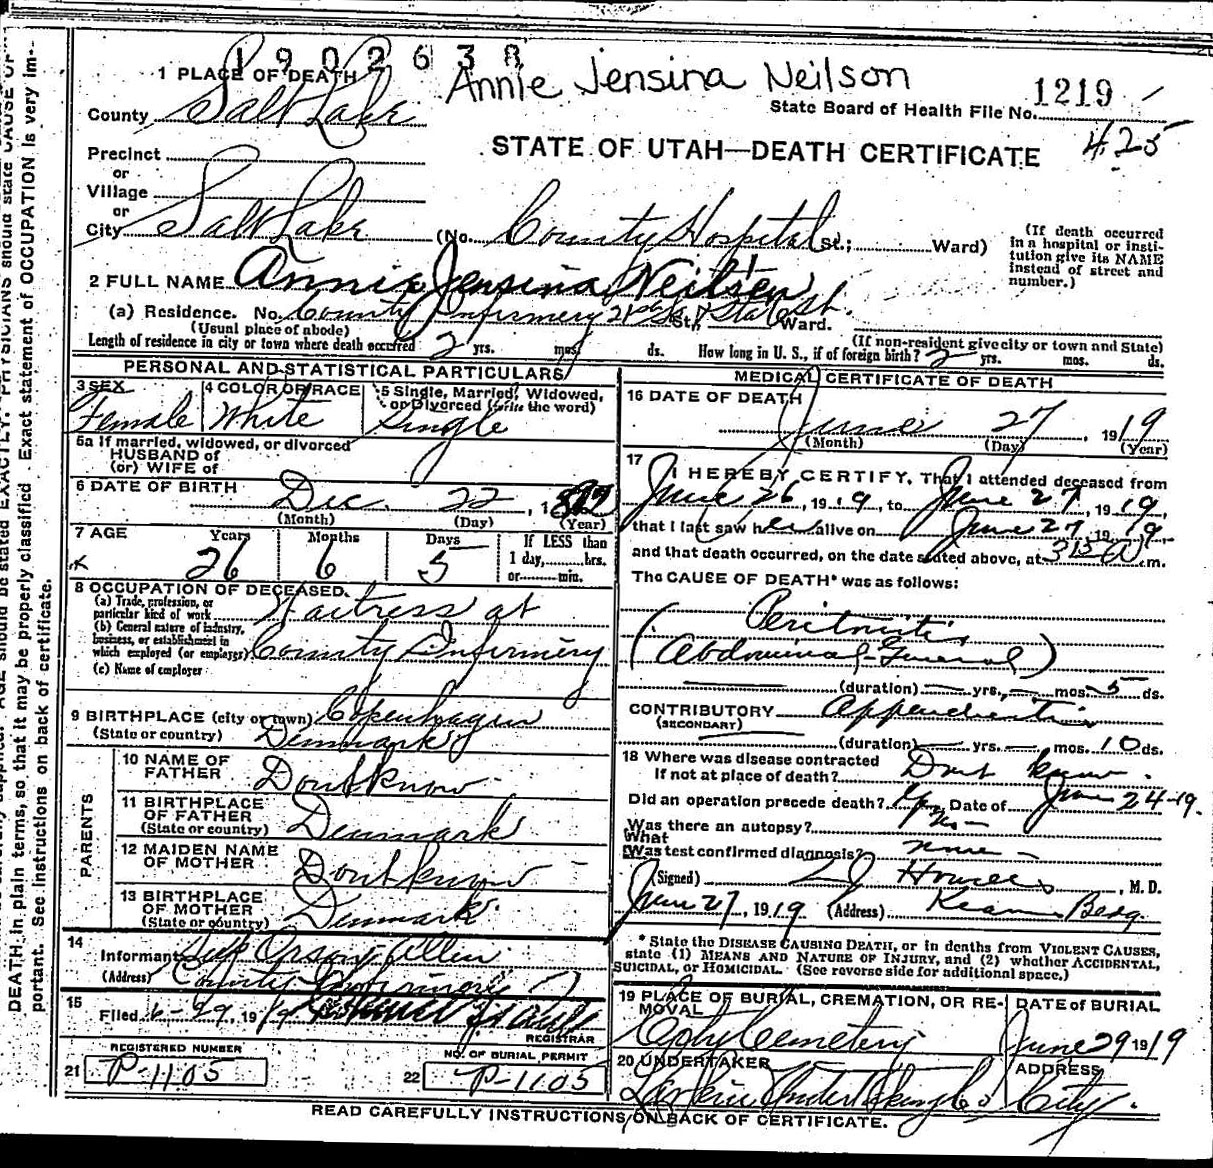 1902638
Annie Jensina Neilson
1 PLACE OF DEATH
County Salt Lake
State Board of Health File No. 1219
425
Precinct
or
Village
or
City Salt Lake (No. County Hospital St.; Ward)
STATE OF UTAH—DEATH CERTIFICATE
(If death occurred in a hospital or institution give its NAME instead of street and number.)
2 FULL NAME Annie Jensina Neilsen
(a) Residence. No. County Infirmery 21st So & State St. St., Ward.
(Usual place of abode) (If non-resident give city or town and State)
Length of residence in city or town where death occurred 2 yrs. mos. ds. How long in U. S., if of foreign birth? 2 yrs. mos. ds.
PERSONAL AND STATISTICAL PARTICULARS
3 SEX Female
4 COLOR OR RACE White
5 Single, Married, Widowed, or Divorced (write the word) Single
5a If married, widowed, or divorced
HUSBAND of
(or) WIFE of
6 DATE OF BIRTH Dec. 22, 1892
(Month) (Day) (Year)
7 AGE Years Months Days If LESS than
26 6 5 1 day,......hrs.
or......min.
8 OCCUPATION OF DECEASED.
(a) Trade, profession, or particular kind of work Waitress at
(b) General nature of industry, business, or establishment in which employed (or employer) County Infirmery
(c) Name of employer
9 BIRTHPLACE (city or town) Copenhagen
(State or country) Denmark
PARENTS
10 NAME OF FATHER Dont know
11 BIRTHPLACE OF FATHER (State or country) Denmark
12 MAIDEN NAME OF MOTHER Dont know
13 BIRTHPLACE OF MOTHER (State or country) Denmark
14 Informant Allen
(Address) County Infirmery
15 Filed 6-29, 1919
REGISTRAR
REGISTERED NUMBER
21 P-1105
NO. OF BURIAL PERMIT
22 P-1105
MEDICAL CERTIFICATE OF DEATH
16 DATE OF DEATH
June 27, 1919
(Month) (Day) (Year)
17 I HEREBY CERTIFY, That I attended deceased from
June 26, 1919, to June 27, 1919,
that I last saw her alive on June 27, 1919.
and that death occurred, on the date stated above, at 315 A m.
The CAUSE OF DEATH* was as follows:
Peritonitis
(Abdominal-General)
(duration) — yrs. — mos. 5 ds.
CONTRIBUTORY Appendicitis
(SECONDARY)
(duration) — yrs. — mos. 10 ds.
18 Where was disease contracted
If not at place of death? Dont know.
Did an operation precede death? Yes Date of June 24-19.
Was there an autopsy? No —
What
Was test confirmed diagnosis? none —
(Signed) Howells, M. D.
June 27, 1919 (Address) Kearns Bldg.
* State the DISEASE CAUSING DEATH, or in deaths from VIOLENT CAUSES,
state (1) MEANS AND NATURE OF INJURY, and (2) whether ACCIDENTAL,
SUICIDAL, or HOMICIDAL. (See reverse side for additional space.)
19 PLACE OF BURIAL, CREMATION, OR REMOVAL City Cemetery
DATE of BURIAL June 29 1919
20 UNDERTAKER Larkin Undertaking Co
ADDRESS City.
READ CAREFULLY INSTRUCTIONS ON BACK OF CERTIFICATE.
AGE should be stated EXACTLY. PHYSICIANS should state CAUSE OF
DEATH in plain terms, so that it may be properly classified. Exact statement of OCCUPATION is very im-
portant. See instructions on back of certificate.